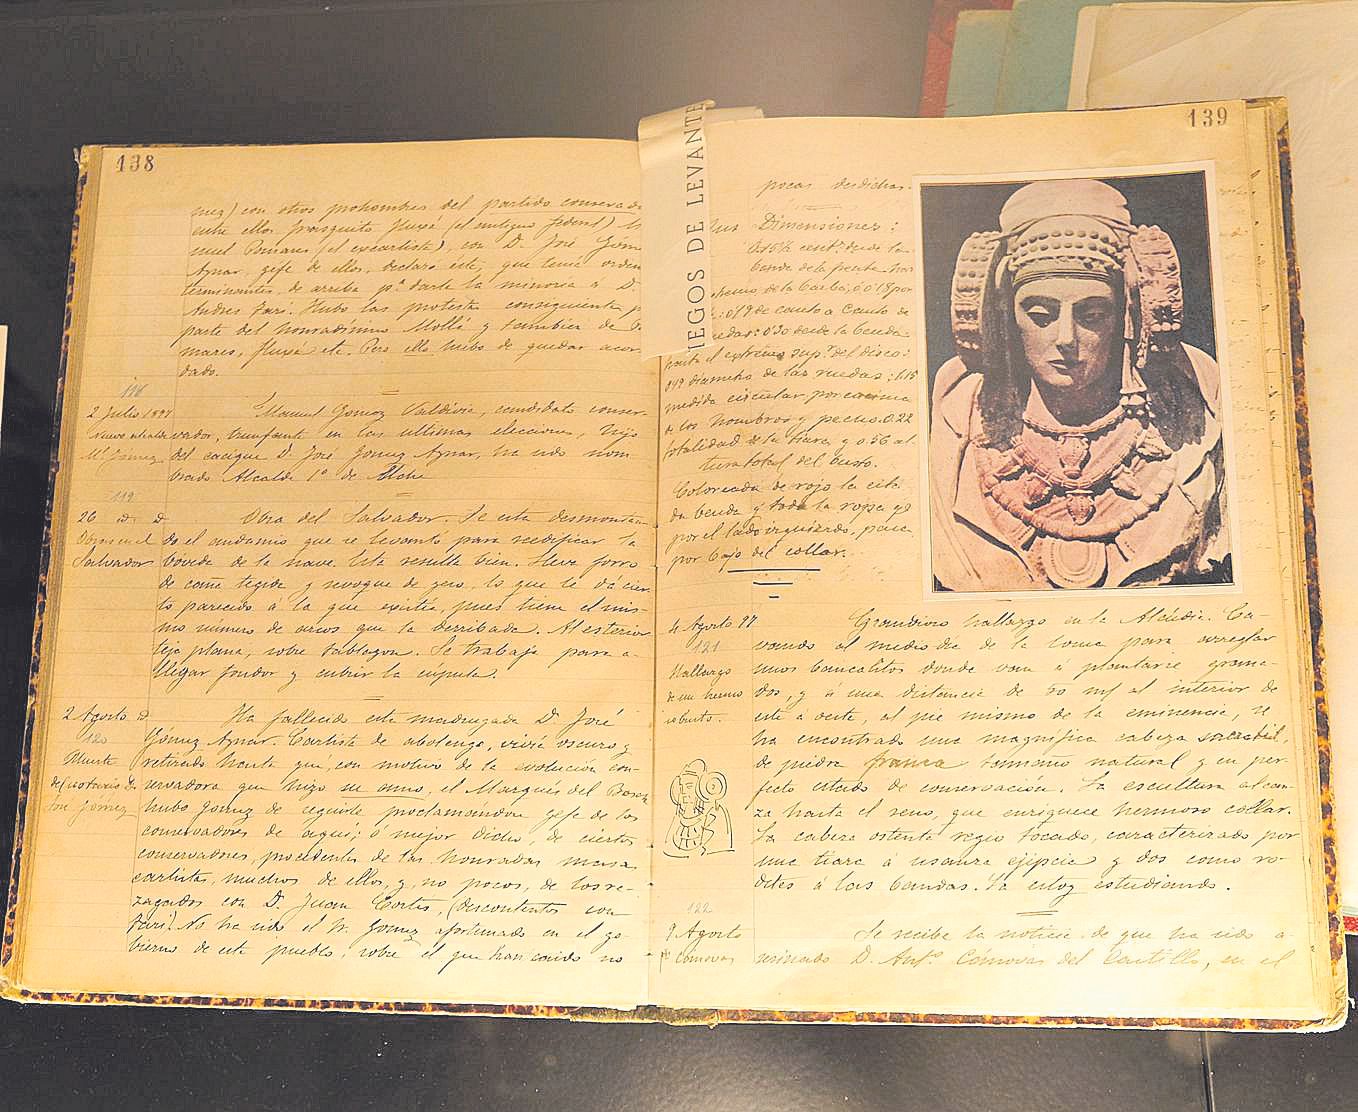 138
nez) con otros prohombres del partido conserva
entre ellos Frasquito Fluxá (el antiguo federal)
el excartista), con D. José Gom
Aznar, gefe de ellos, declaró éste, que tenia orden
terminantes, de arriba pª darle la minoria á D.
Andres Tari. Hubo las protesta consiguiente p
parte del honradisimo Mollá y tambien de
mares, Fluxá etc. Pero ello hubo de quedar acor-
dado.
2 Julio 1897
Manuel Gomez Valdivia, candidato conser-
Nuevo alcalde
vador, triunfante en las ultimas elecciones, hijo
Ml Gomez
del cacique D. José Gomez Aznar, ha sido nom
brado Alcalde 1º de Elche
119
26 id id
Obra del Salvador. Se está desmontan-
Obras en el
do el andamio que se levantó para reedificar la
Salvador
bóveda de la nave. Esta resulta bien. Lleva forro
de caña tegida y revoque de yeso, lo que le dá cier-
to parecido á la que existia, pues tiene el mis-
mo número de arcos que la derribada. Al esterior
teja plana, sobre tablagon. Se trabaja para a-
llegar fondos y cubrir la cúpula.
2 Agosto id
Ha fallecido esta madrugada D. José
120
Gómez Aznar. Carlista de abolengo, vivió oscuro y
Muerte
retirado hasta que, con motivo de la evolución con-
del
servadora que hizo su amo, el Marqués del Bosch
José Gomez
hubo Gomez de seguirle proclamándose gefe de los
conservadores de aqui; ó mejor dicho, de ciertos
conservadores, procedentes de las honradas masas
carlistas, muchos de ellos, y, no pocos, de los re-
zagados con D. Juan Cortés, (descontentos con
Tari). No ha sido el Sr. Gomez afortunado en el go-
bierno de este pueblo; sobre él que han caido no
139
IEGOS DE LEVANTE
pocas desdichas.
Dimensiones:
cent.s desde la
banda de la frente hasta
estremo de la barba; 0.018 por
: 0.19 de canto a canto de
ruedas: 0.30 desde la banda
hasta el extremo sup.r del disco:
0.19 diametro de las ruedas: 1.15
medida circular por encima
de los hombros y pecho 0.22
totalidad de la tiara y 0.56 al
tura total del busto.
Coloreada de rojo la cita
da banda y toda la ropa y
por el lado izquierdo, pasa
por bajo del collar.
4 Agosto 97
Grandioso hallazgo en la Alcudia. Ca-
121
vando al mediodia de la loma para arreglar
Hallazgo
unos bancalitos donde van á plantarse grana-
de un hermo
dos, y á una distancia de 50 m/ al interior de
so busto.
este á oeste, al pie mismo de la eminencia, se
ha encontrado una magnifica cabeza
de piedra franca tamaño natural y en per-
fecto estado de conservación. La escultura alcan-
za hasta el seno, que enriquece hermoso collar.
La cabeza ostenta regio tocado, caracterizado por
una tiara á usanza egipcia y dos como ro-
detes á las bandas. La estoy estudiando.
122
9 Agosto
Se recibe la noticia de que ha sido a-
Canovas
sesinado D. Antº Canovas del Castillo, en el